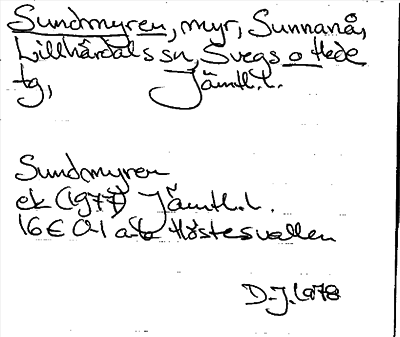 Sundmyren, myr, Sunnanå,
Lillhärdals sn, Svegs o Hede
tg, Jämtl.l.
Sundmyren
ek (1977) Jämtl.l.
16E 0-1 a-b Höstesvallen
D-J. 1978